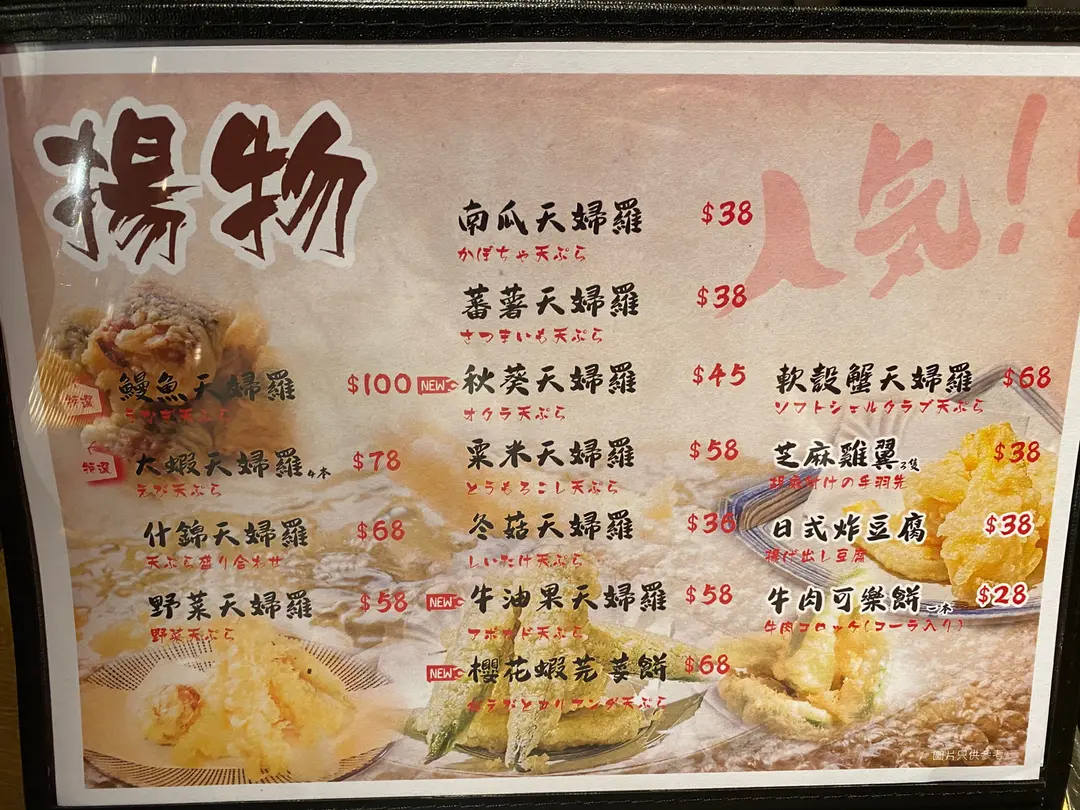 揚物
人気!!
特選 鰻魚天婦羅 $100
うなぎ天ぷら
特選 大蝦天婦羅4本 $78
えび天ぷら
什錦天婦羅 $68
天ぷら盛り合わせ
野菜天婦羅 $58
野菜天ぷら
南瓜天婦羅 $38
かぼちゃ天ぷら
蕃薯天婦羅 $38
さつまいも天ぷら
NEW 秋葵天婦羅 $45
オクラ天ぷら
粟米天婦羅 $58
とうもろこし天ぷら
冬菇天婦羅 $36
しいたけ天ぷら
NEW 牛油果天婦羅 $58
アボカド天ぷら
NEW 櫻花蝦芫荽餅 $68
軟殼蟹天婦羅 $68
ソフトシェルクラブ天ぷら
芝麻雞翼3隻 $38
胡麻付けの手羽先
日式炸豆腐 $38
揚げ出し豆腐
牛肉可樂餅二本 $28
牛肉コロッケ(コーラ入り)
圖片只供參考